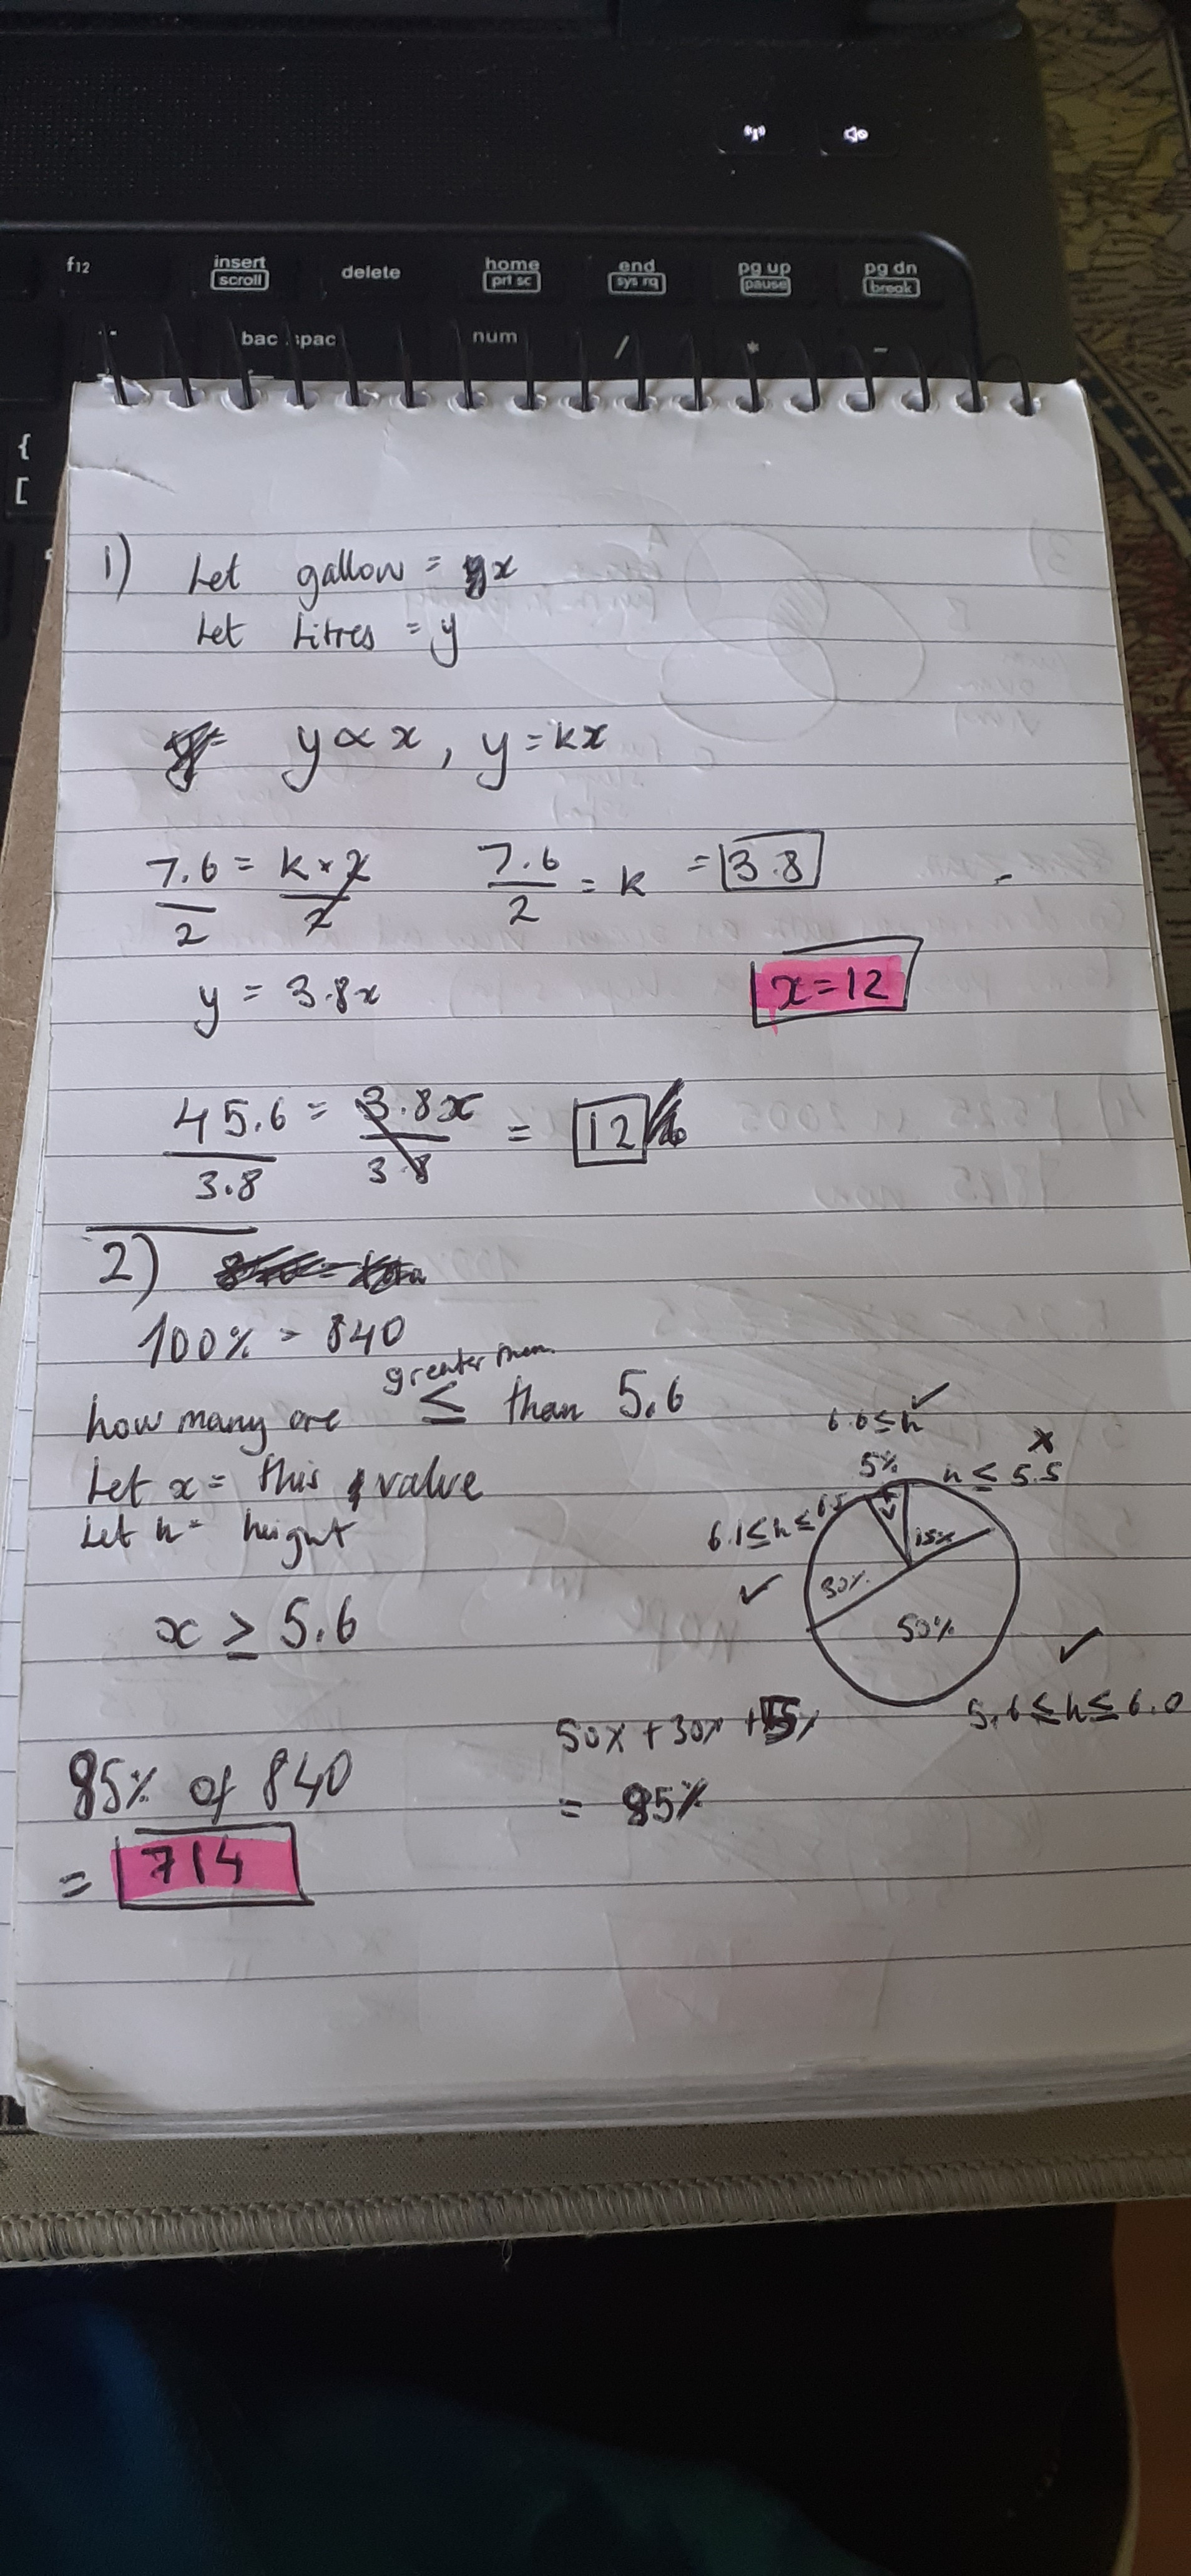 f12 insert scroll delete home prt sc end sys rq pg up pause pg dn break
bac spac num / * -
{
[
1) Let gallow = x
Let Litres = y
y ∝ x, y = kx
7.6 = k × 2 7.6 = k = 3.8
2 2 2
y = 3.8x x = 12
45.6 = 3.8x = 12
3.8 3.8
2)
100% = 840
greater than
how many are ≤ than 5.6
Let x = this value
Let h = height
x ≥ 5.6
6.6 ≤ h ✓
5% h ≤ 5.5 x
6.1 ≤ h ≤ 6.5 ✓
15%
30%
50%
5.6 ≤ h ≤ 6.0 ✓
50% + 30% + 5%
= 85%
85% of 840
= 714